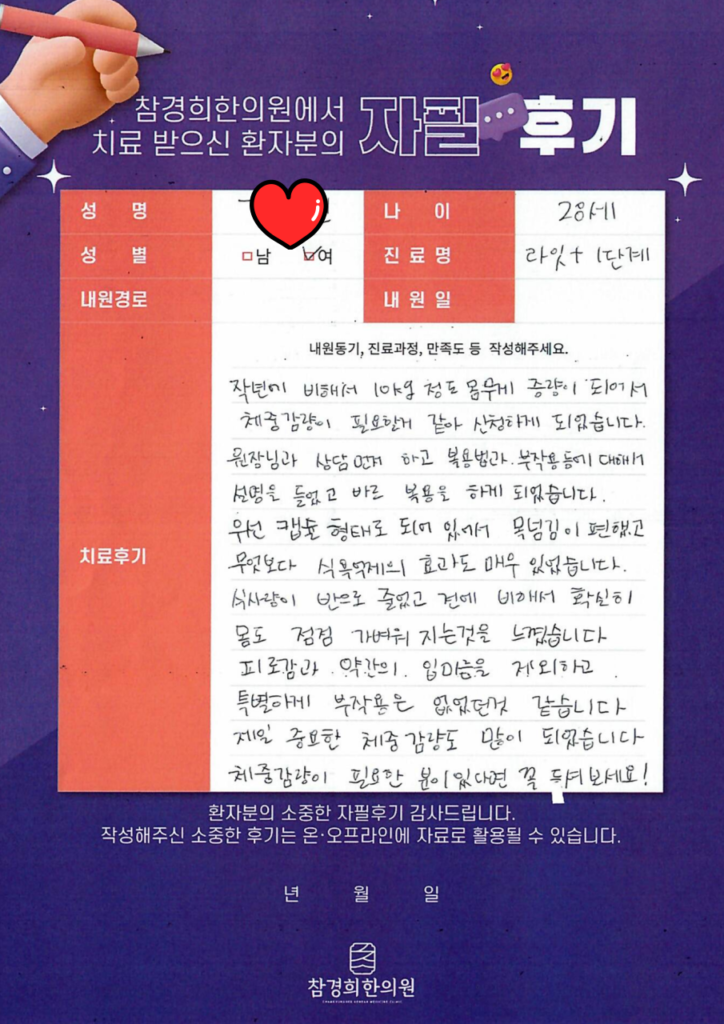 참경희한의원에서
치료 받으신 환자분의 자필후기
성 명
나 이 28세
성 별 남 여
진료명 라잇+ 1단계
내원경로
내원일
내원동기, 진료과정, 만족도 등 작성해주세요.
치료후기
작년에 비해서 10kg 정도 몸무게 증량이 되어서
체중감량이 필요한거 같아 신청하게 되었습니다.
원장님과 상담먼저 하고 복용법과. 부작용등에 대해서
설명을 들었고 바로 복용을 하게 되었습니다.
우선 캡슐 형태로 되어 있어서 목넘김이 편했고
무엇보다 식욕억제의 효과도 매우 있었습니다.
식사량이 반으로 줄었고 전에 비해서 확실히
몸도 점점 가벼워 지는것을 느꼈습니다
피로감과 약간의 입마름을 제외하고
특별하게 부작용은 없었던것 같습니다
제일 중요한 체중감량도 많이 되었습니다
체중감량이 필요한 분이 있다면 꼭 드셔보세요!
환자분의 소중한 자필후기 감사드립니다.
작성해주신 소중한 후기는 온·오프라인에 자료로 활용될 수 있습니다.
년 월 일
참경희한의원